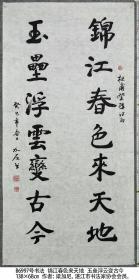 杜甫登楼诗句
錦江春色來天地
玉壘浮雲變古今
B6997号书法 锦江春色来天地 玉垒浮云变古今
138×68cm 作者:梁加尼, 湛江市书法家协会会员.